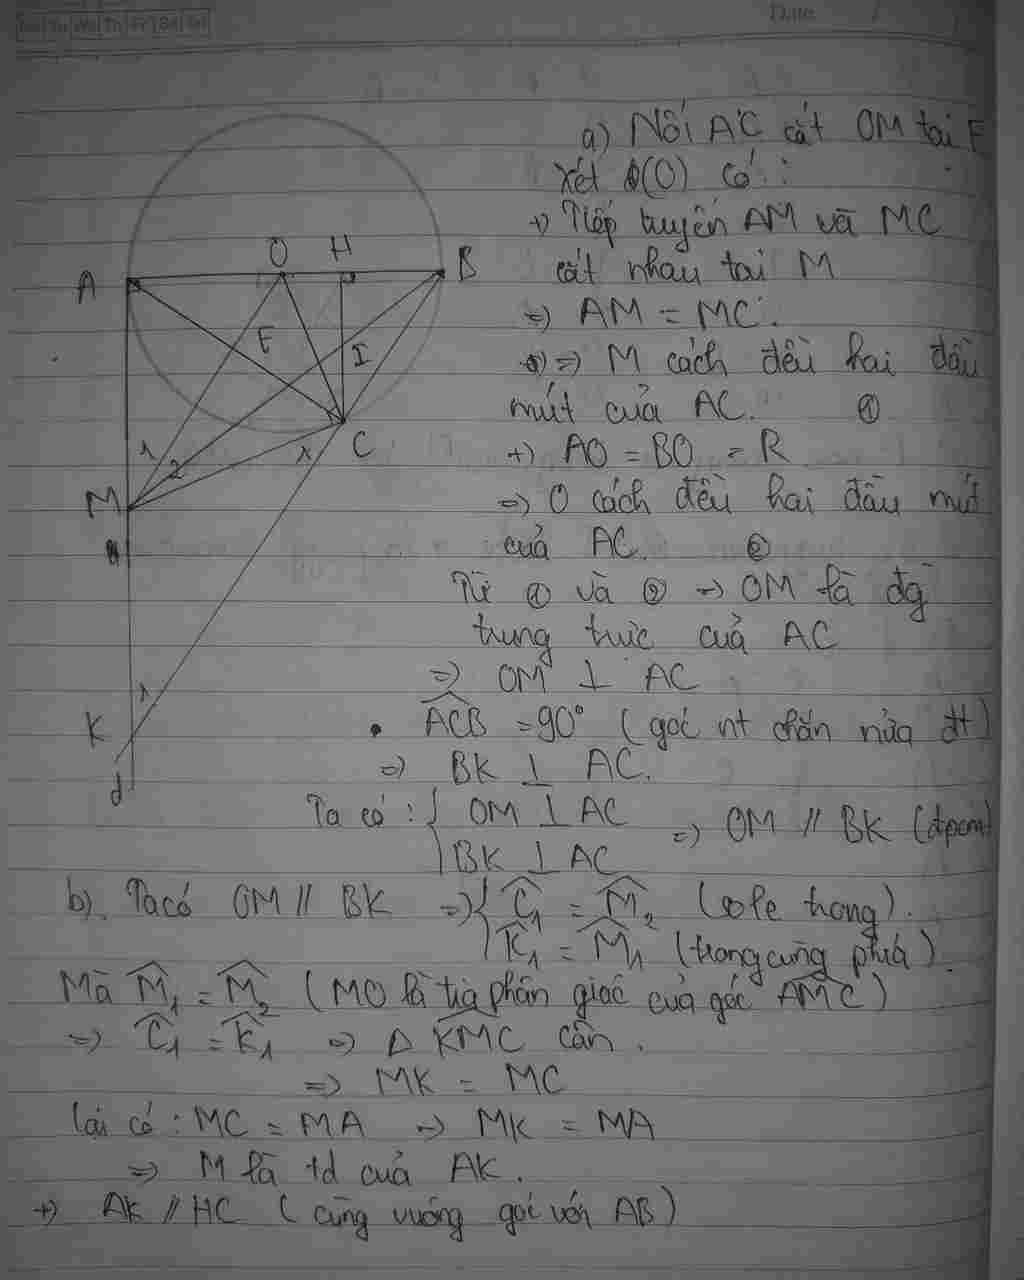 Date /
a) Nối AC cắt OM tại E
xét (O) có :
+) Tiếp tuyến AM và MC
cắt nhau tại M
=> AM = MC.
=> M cách đều hai đầu
mút của AC. ①
+) AO = BO = R
=> O cách đều hai đầu mút
của AC. ②
Từ ① và ② => OM là đg
trung trực của AC
=> OM ⊥ AC
• \widehat{ACB} = 90° (góc nt chắn nửa đt)
=> BK ⊥ AC.
Ta có : { OM ⊥ AC
BK ⊥ AC => OM // BK (đpcm)
b). Ta có OM // BK => { \widehat{C}_1 = \widehat{M}_2 (sole trong).
\widehat{K}_1 = \widehat{M}_1 (trong cùng phía).
Mà \widehat{M}_1 = \widehat{M}_2 (MO là tia phân giác của góc \widehat{AMC})
=> \widehat{C}_1 = \widehat{K}_1 => Δ \widehat{KMC} cân.
=> MK = MC
lại có : MC = MA => MK = MA
=> M là td của AK.
+) AK // HC (cùng vuông góc với AB)
A O H B
E I
1 2 1 C
M
1
K
d